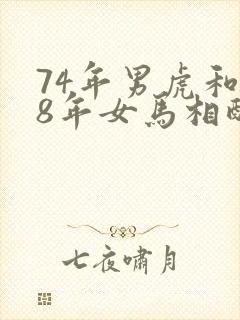 74年男虎和
8年女馬相
七夜嘯月